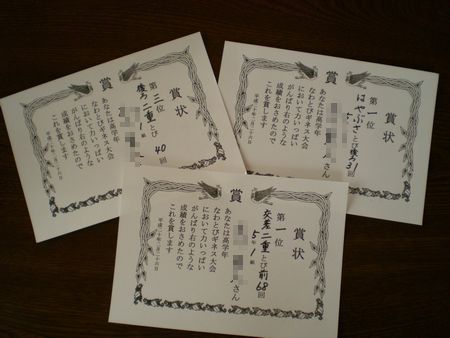 賞状
第三位
後ろ二重とび 40回
あなたは高学年
なわとびギネス大会
において力いっぱい
がんばり右のような
成績をおさめたので
これを賞します
賞状
第一位
はやぶさとび後ろ31回
さん
あなたは高学年
なわとびギネス大会
において力いっぱい
がんばり右のような
成績をおさめたので
これを賞します
賞状
第一位
交差二重とび前68回
5年1組
さん
あなたは高学年
なわとびギネス大会
において力いっぱい
がんばり右のような
成績をおさめたので
これを賞します
平成二十年二月二十六日